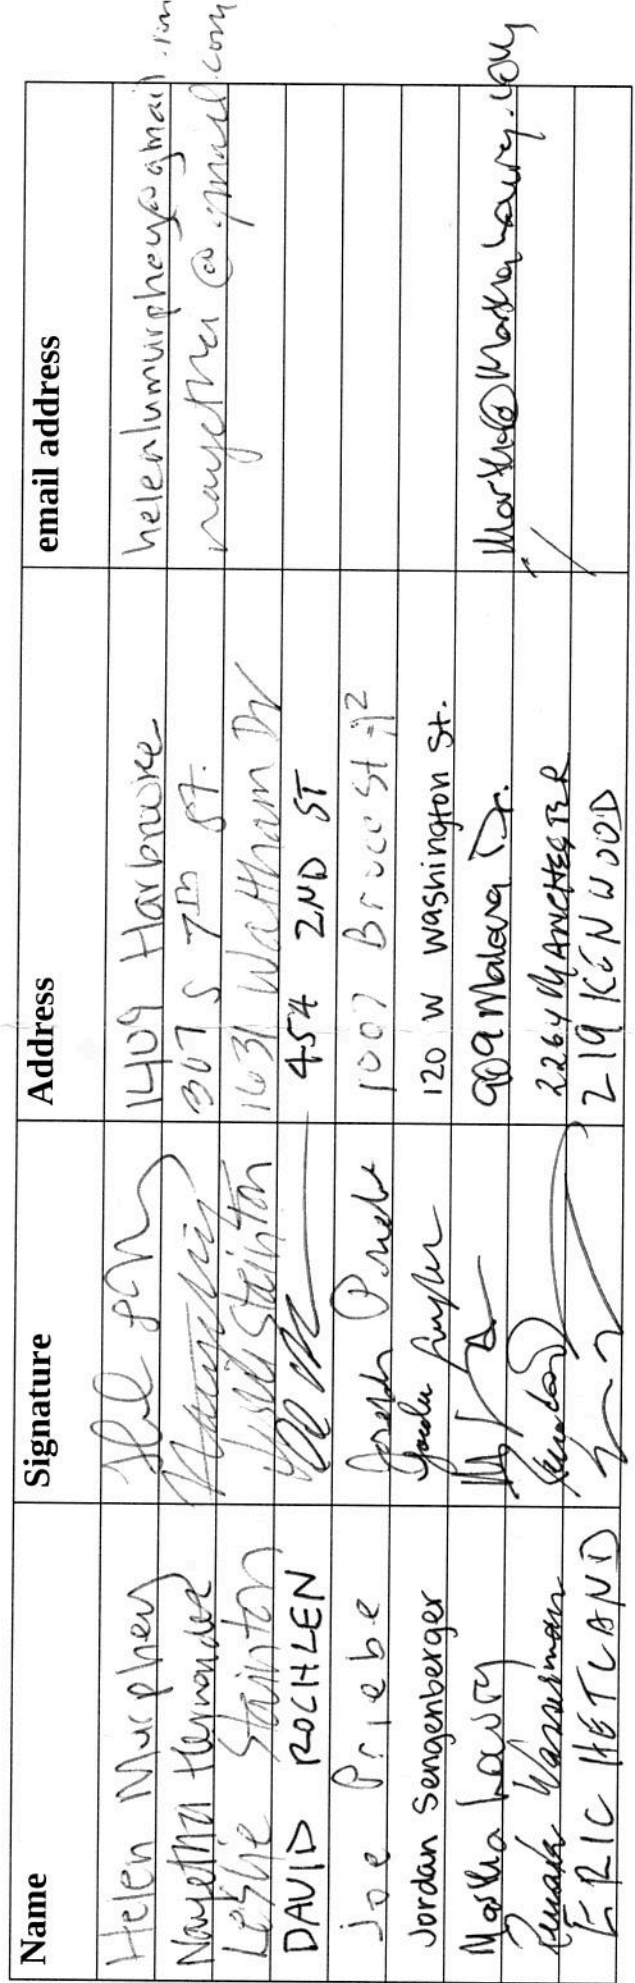 Name Signature Address email address
Helen Murphey 1409 Harbrooke helenlumurphey@gmail.com
Nayetha Hernandez 307 S 7th St. nayetha@gmail.com
Leslie Stainton Leslie Stainton 1631 Waltham Dr
DAVID ROCHLEN 454 2ND ST
Joe Priebe Joseph Priebe 1007 Bruce St #2
Jordan Sengenberger 120 W Washington St.
Martha Lavry 909 Dr. Martha@
Wasserman 2264 MANCHESTER
ERIC HETLAND 219 KENWOOD